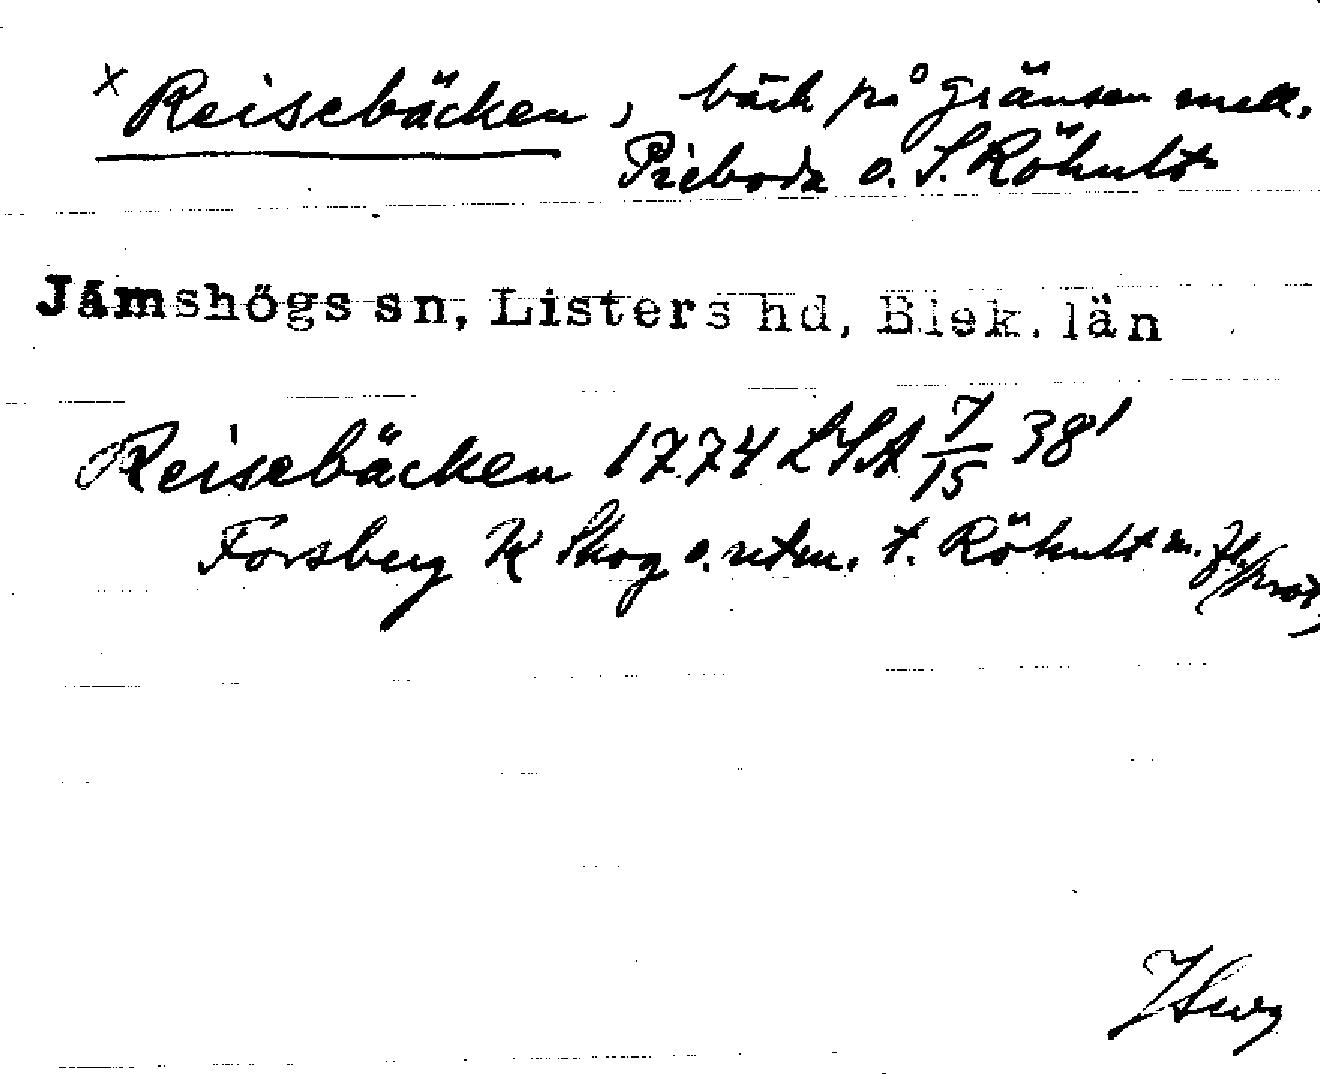 x Reisebäcken, bäck på gränsen mell.
Prieboda o. S. Röhult
Jämshögs sn, Listers hd, Blek. län
Reisebäcken 1774 LSA 7/15 38'
Forsberg K Skog o. utm. t. Röhult m. fl.